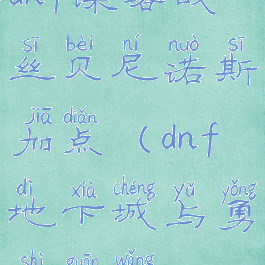 sī bèi ní nuò sī
丝贝尼诺斯
jiā diǎn
加点（dnf
dì xià chéng yǔ yǒng
地下城与勇
shì guān wǎng